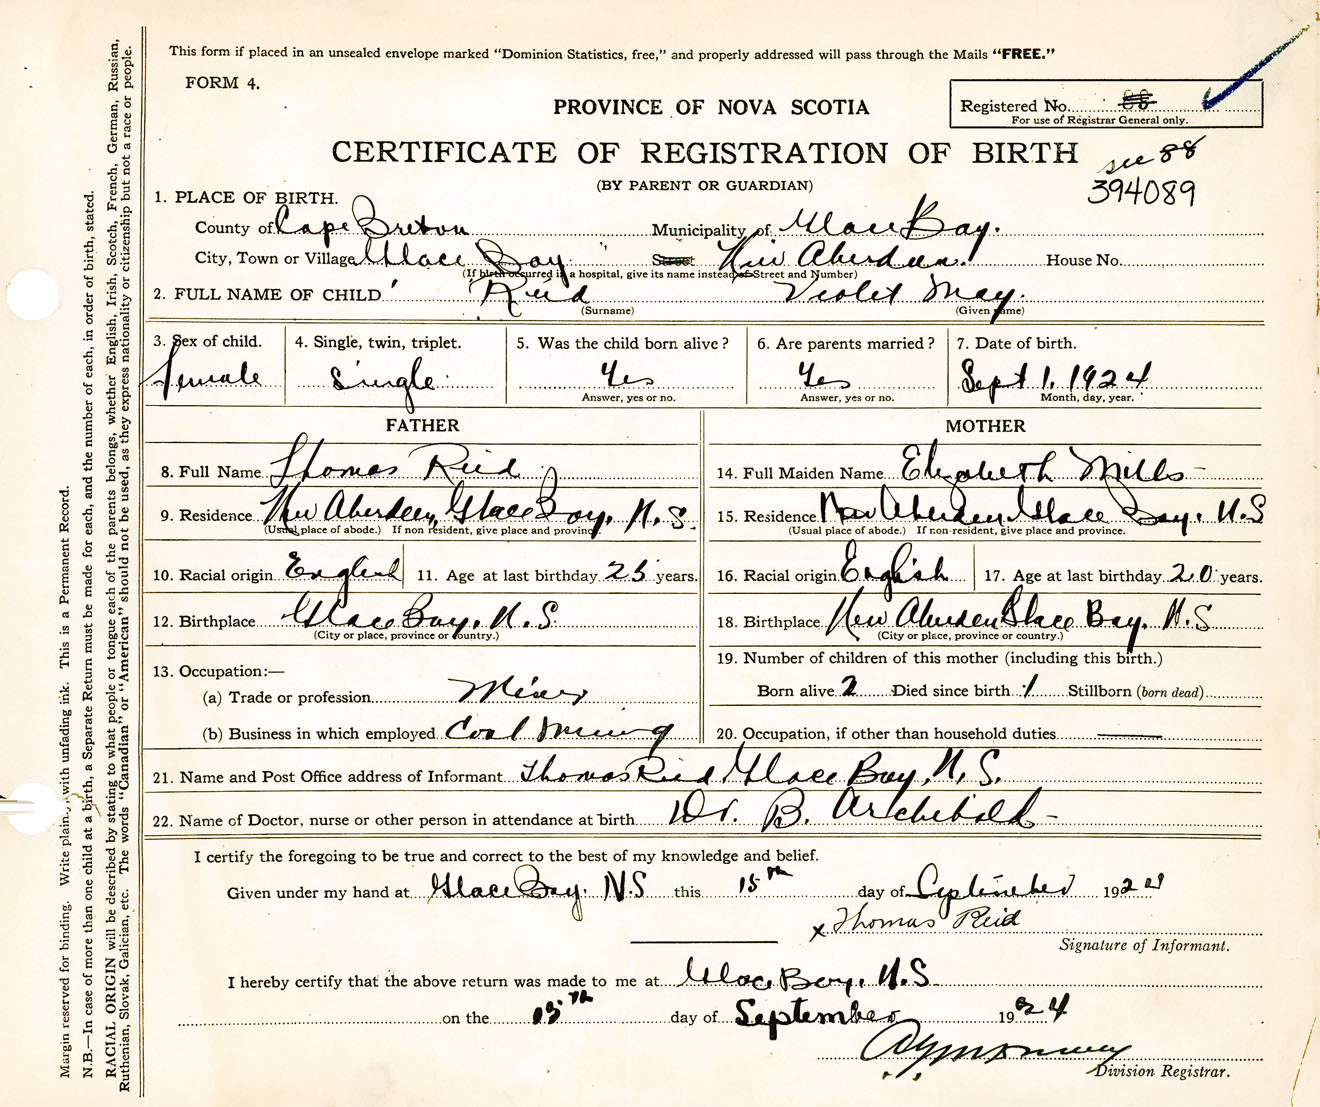 This form if placed in an unsealed envelope marked "Dominion Statistics, free," and properly addressed will pass through the Mails "FREE."
FORM 4.
PROVINCE OF NOVA SCOTIA
Registered No. 88
For use of Registrar General only.
CERTIFICATE OF REGISTRATION OF BIRTH
see 88
(BY PARENT OR GUARDIAN)
394089
1. PLACE OF BIRTH.
County of Cape Breton Municipality of Glace Bay.
City, Town or Village Glace Bay Street New Aberdeen. House No.
(If birth occurred in a hospital, give its name instead of Street and Number)
2. FULL NAME OF CHILD Reid Violet May.
(Surname) (Given name)
3. Sex of child. 4. Single, twin, triplet. 5. Was the child born alive? 6. Are parents married? 7. Date of birth.
female single Yes Yes Sept 1, 1924
Answer, yes or no. Answer, yes or no. Month, day, year.
FATHER MOTHER
8. Full Name Thomas Reid 14. Full Maiden Name Elizabeth Mills
9. Residence New Aberdeen, Glace Bay, N.S. 15. Residence New Aberdeen Glace Bay, N.S
(Usual place of abode.) If non resident, give place and province. (Usual place of abode.) If non-resident, give place and province.
10. Racial origin English 11. Age at last birthday 25 years. 16. Racial origin English 17. Age at last birthday 20 years.
12. Birthplace Glace Bay, N.S. 18. Birthplace New Aberdeen Glace Bay, N.S
(City or place, province or country.) (City or place, province or country.)
13. Occupation:— 19. Number of children of this mother (including this birth.)
(a) Trade or profession Miner Born alive 2 Died since birth 1 Stillborn (born dead)
(b) Business in which employed Coal Mining 20. Occupation, if other than household duties
21. Name and Post Office address of Informant Thomas Reid Glace Bay, N.S.
22. Name of Doctor, nurse or other person in attendance at birth Dr. B. Archibald
I certify the foregoing to be true and correct to the best of my knowledge and belief.
Given under my hand at Glace Bay. N.S this 15th day of September 1924
x Thomas Reid
Signature of Informant.
I hereby certify that the above return was made to me at Glace Bay, N.S
on the 15th day of September 1924
Division Registrar.
Margin reserved for binding. Write plainly with unfading ink. This is a Permanent Record.
N.B.—In case of more than one child at a birth, a Separate Return must be made for each, and the number of each, in order of birth, stated.
RACIAL ORIGIN will be described by stating to what people or tongue each of the parents belongs, whether English, Irish, Scotch, French, German, Russian,
Ruthenian, Slovak, Galician, etc. The words "Canadian" or "American" should not be used, as they express nationality or citizenship but not a race or people.